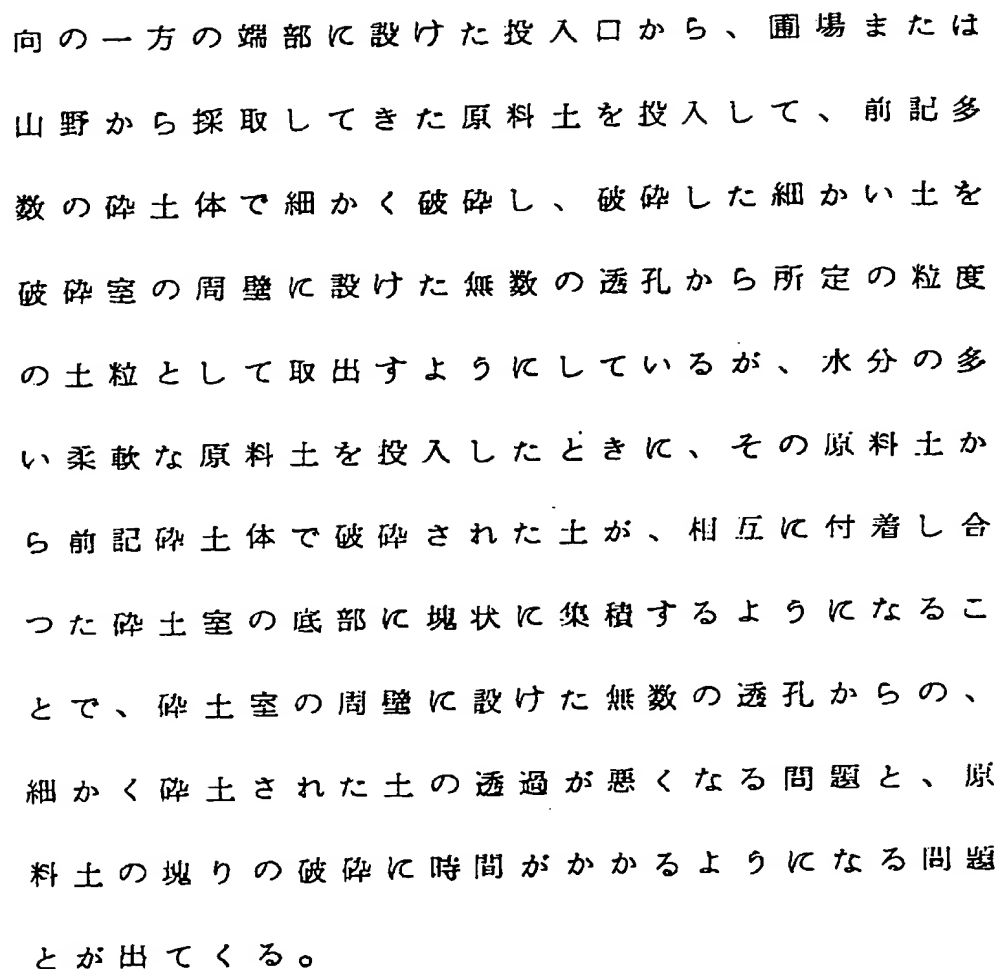 向の一方の端部に設けた投入口から、圃場または
山野から採取してきた原料土を投入して、前記多
数の砕土体で細かく破砕し、破砕した細かい土を
破砕室の周壁に設けた無数の透孔から所定の粒度
の土粒として取出すようにしているが、水分の多
い柔軟な原料土を投入したときに、その原料土か
ら前記砕土体で破砕された土が、相互に付着し合
つた砕土室の底部に塊状に集積するようになるこ
とで、砕土室の周壁に設けた無数の透孔からの、
細かく砕土された土の透過が悪くなる問題と、原
料土の塊りの破砕に時間がかかるようになる問題
とが出てくる。